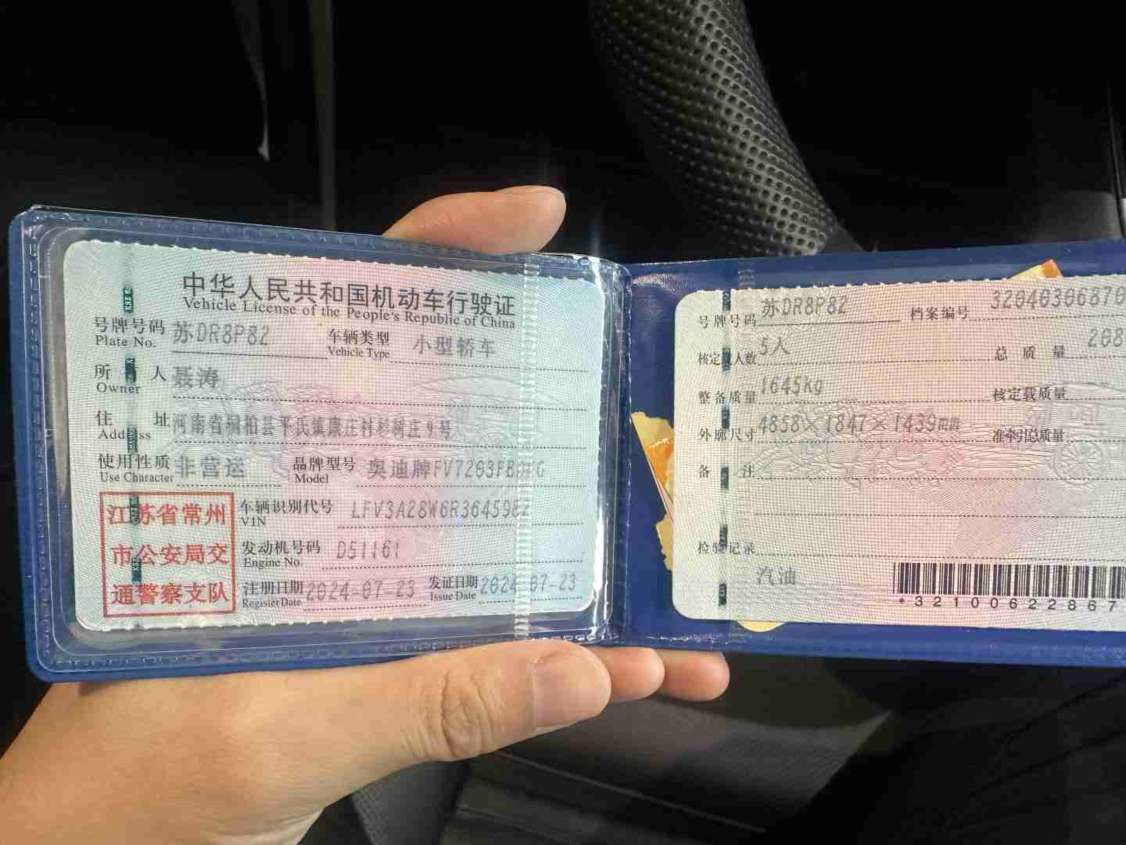 中华人民共和国机动车行驶证
Vehicle License of the People's Republic of China
号牌号码 苏DR8P82 车辆类型 小型轿车
Plate No. Vehicle Type
所有人 聂涛
Owner
住址 河南省桐柏县平氏镇康庄村杉树庄9号
Address
使用性质 非营运 品牌型号 奥迪牌
Use Character Model
江苏省常州
市公安局交
通警察支队
车辆识别代号 LFV3A28W6R3645982
VIN
发动机号码 D51161
Engine No.
注册日期 2024-07-23 发证日期 2024-07-23
Register Date Issue Date
号牌号码 苏DR8P82 档案编号 32040306870
核定人数 5人 总质量 208
整备质量 1645Kg 核定载质量
外廓尺寸 4858×1847×1439mm 准牵引总质量
备注
检验记录
汽油
*32100622867